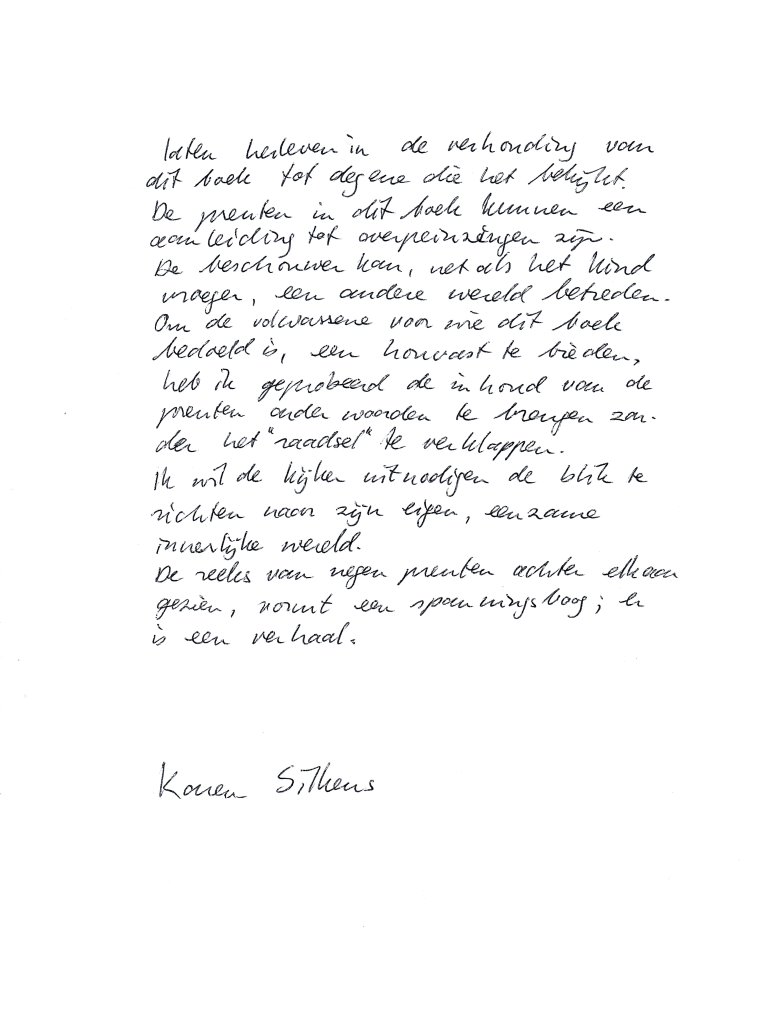 laten herleven in de verhouding van
dit boek tot degene die het bekijkt.
De prenten in dit boek kunnen een
aanleiding tot overpeinzingen zijn.
De beschouwer kan, net als het kind
vroeger, een andere wereld betreden.
Om de volwassene voor wie dit boek
bedoeld is, een houvast te bieden,
heb ik geprobeerd de inhoud van de
prenten onder woorden te brengen zon-
der het "raadsel" te verklappen.
Ik wil de kijker uitnodigen de blik te
richten naar zijn eigen, eenzame
innerlijke wereld.
De reeks van negen prenten achter elkaar
gezien, vormt een spanningsboog; er
is een verhaal.